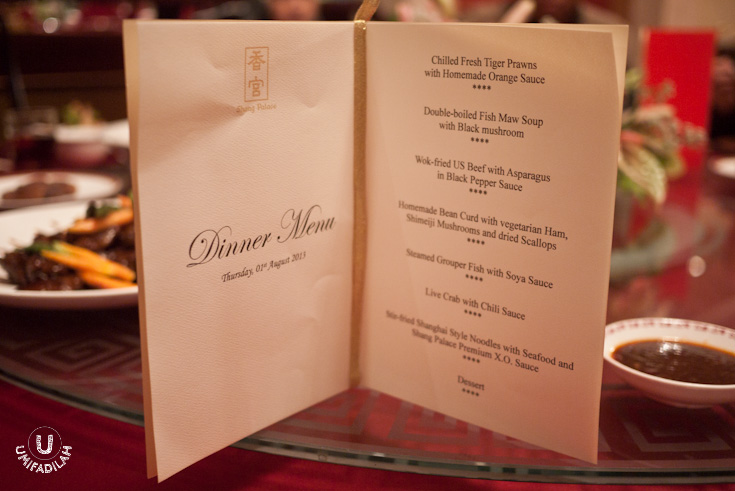 香
宮
Shang Palace
Dinner Menu
Thursday, 01st August 2013
Chilled Fresh Tiger Prawns
with Homemade Orange Sauce
****
Double-boiled Fish Maw Soup
with Black mushroom
****
Wok-fried US Beef with Asparagus
in Black Pepper Sauce
****
Homemade Bean Curd with vegetarian Ham,
Shimeiji Mushrooms and dried Scallops
****
Steamed Grouper Fish with Soya Sauce
****
Live Crab with Chili Sauce
****
Stir-fried Shanghai Style Noodles with Seafood and
Shang Palace Premium X.O. Sauce
****
Dessert
****
U
UMIFADILAH